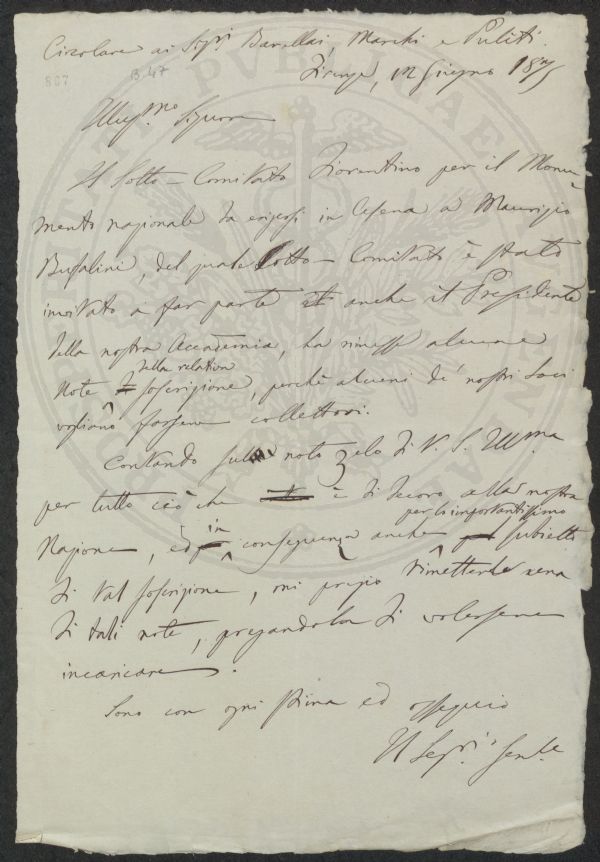 Circolare ai Sigri Barellai, Marchi e Puliti.
807 B.47
Firenze, 12 Giugno 1875
Illusmo Signore
Il Sotto-Comitato Fiorentino per il Monu-
mento nazionale da erigersi in Cesena a Maurizio
Bufalini, del quale Sotto-Comitato è stato
invitato a far parte anche il Presidente
della nostra Accademia, ha rimesse alcune
della relativa
Note soscrizione, perchè alcuni de' nostri Soci
vogliano farsene collettori.
Contando sul noto zelo di V. S. Illma
per tutto ciò che è di decoro alla nostra
per lo importantissimo
in
Nazione, ed conseguenza anche subietto
di tal soscrizione, mi pregio rimetterle una
di tali note, pregandola di volersene
incaricare.
Sono con ogni stima ed ossequio
Il Segrio Genle
PVBLICAE